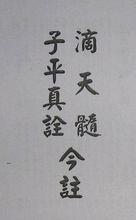 滴天髓今註
子平真詮